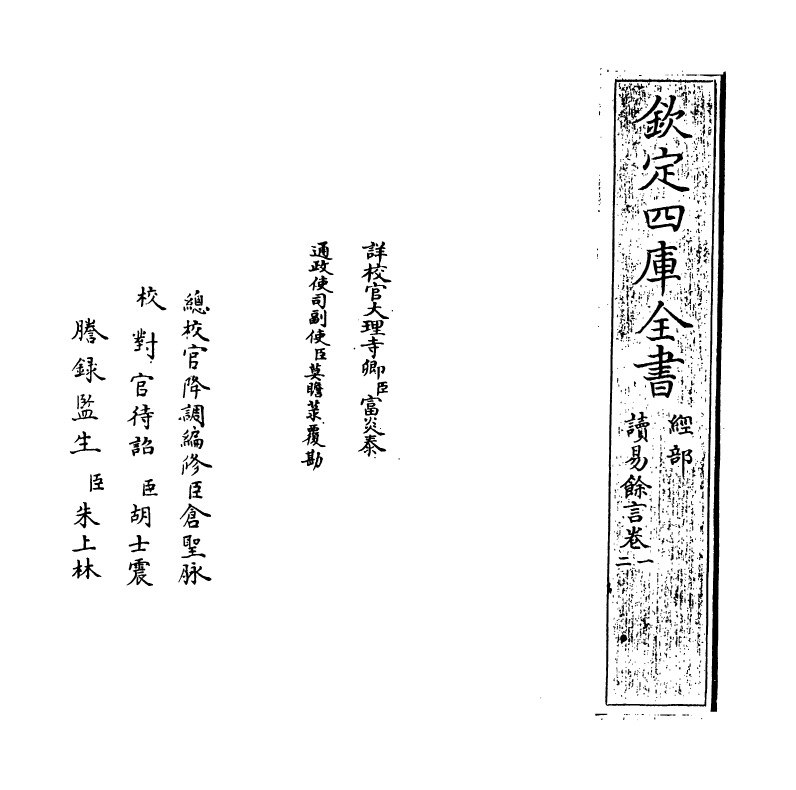 欽定四庫全書
經部
讀易餘言卷一
二
詳校官大理寺卿臣富炎泰
通政使司副使臣莫瞻菉覆勘
總校官降調編修臣倉聖脉
校對官待詔臣胡士震
謄録監生臣朱上林